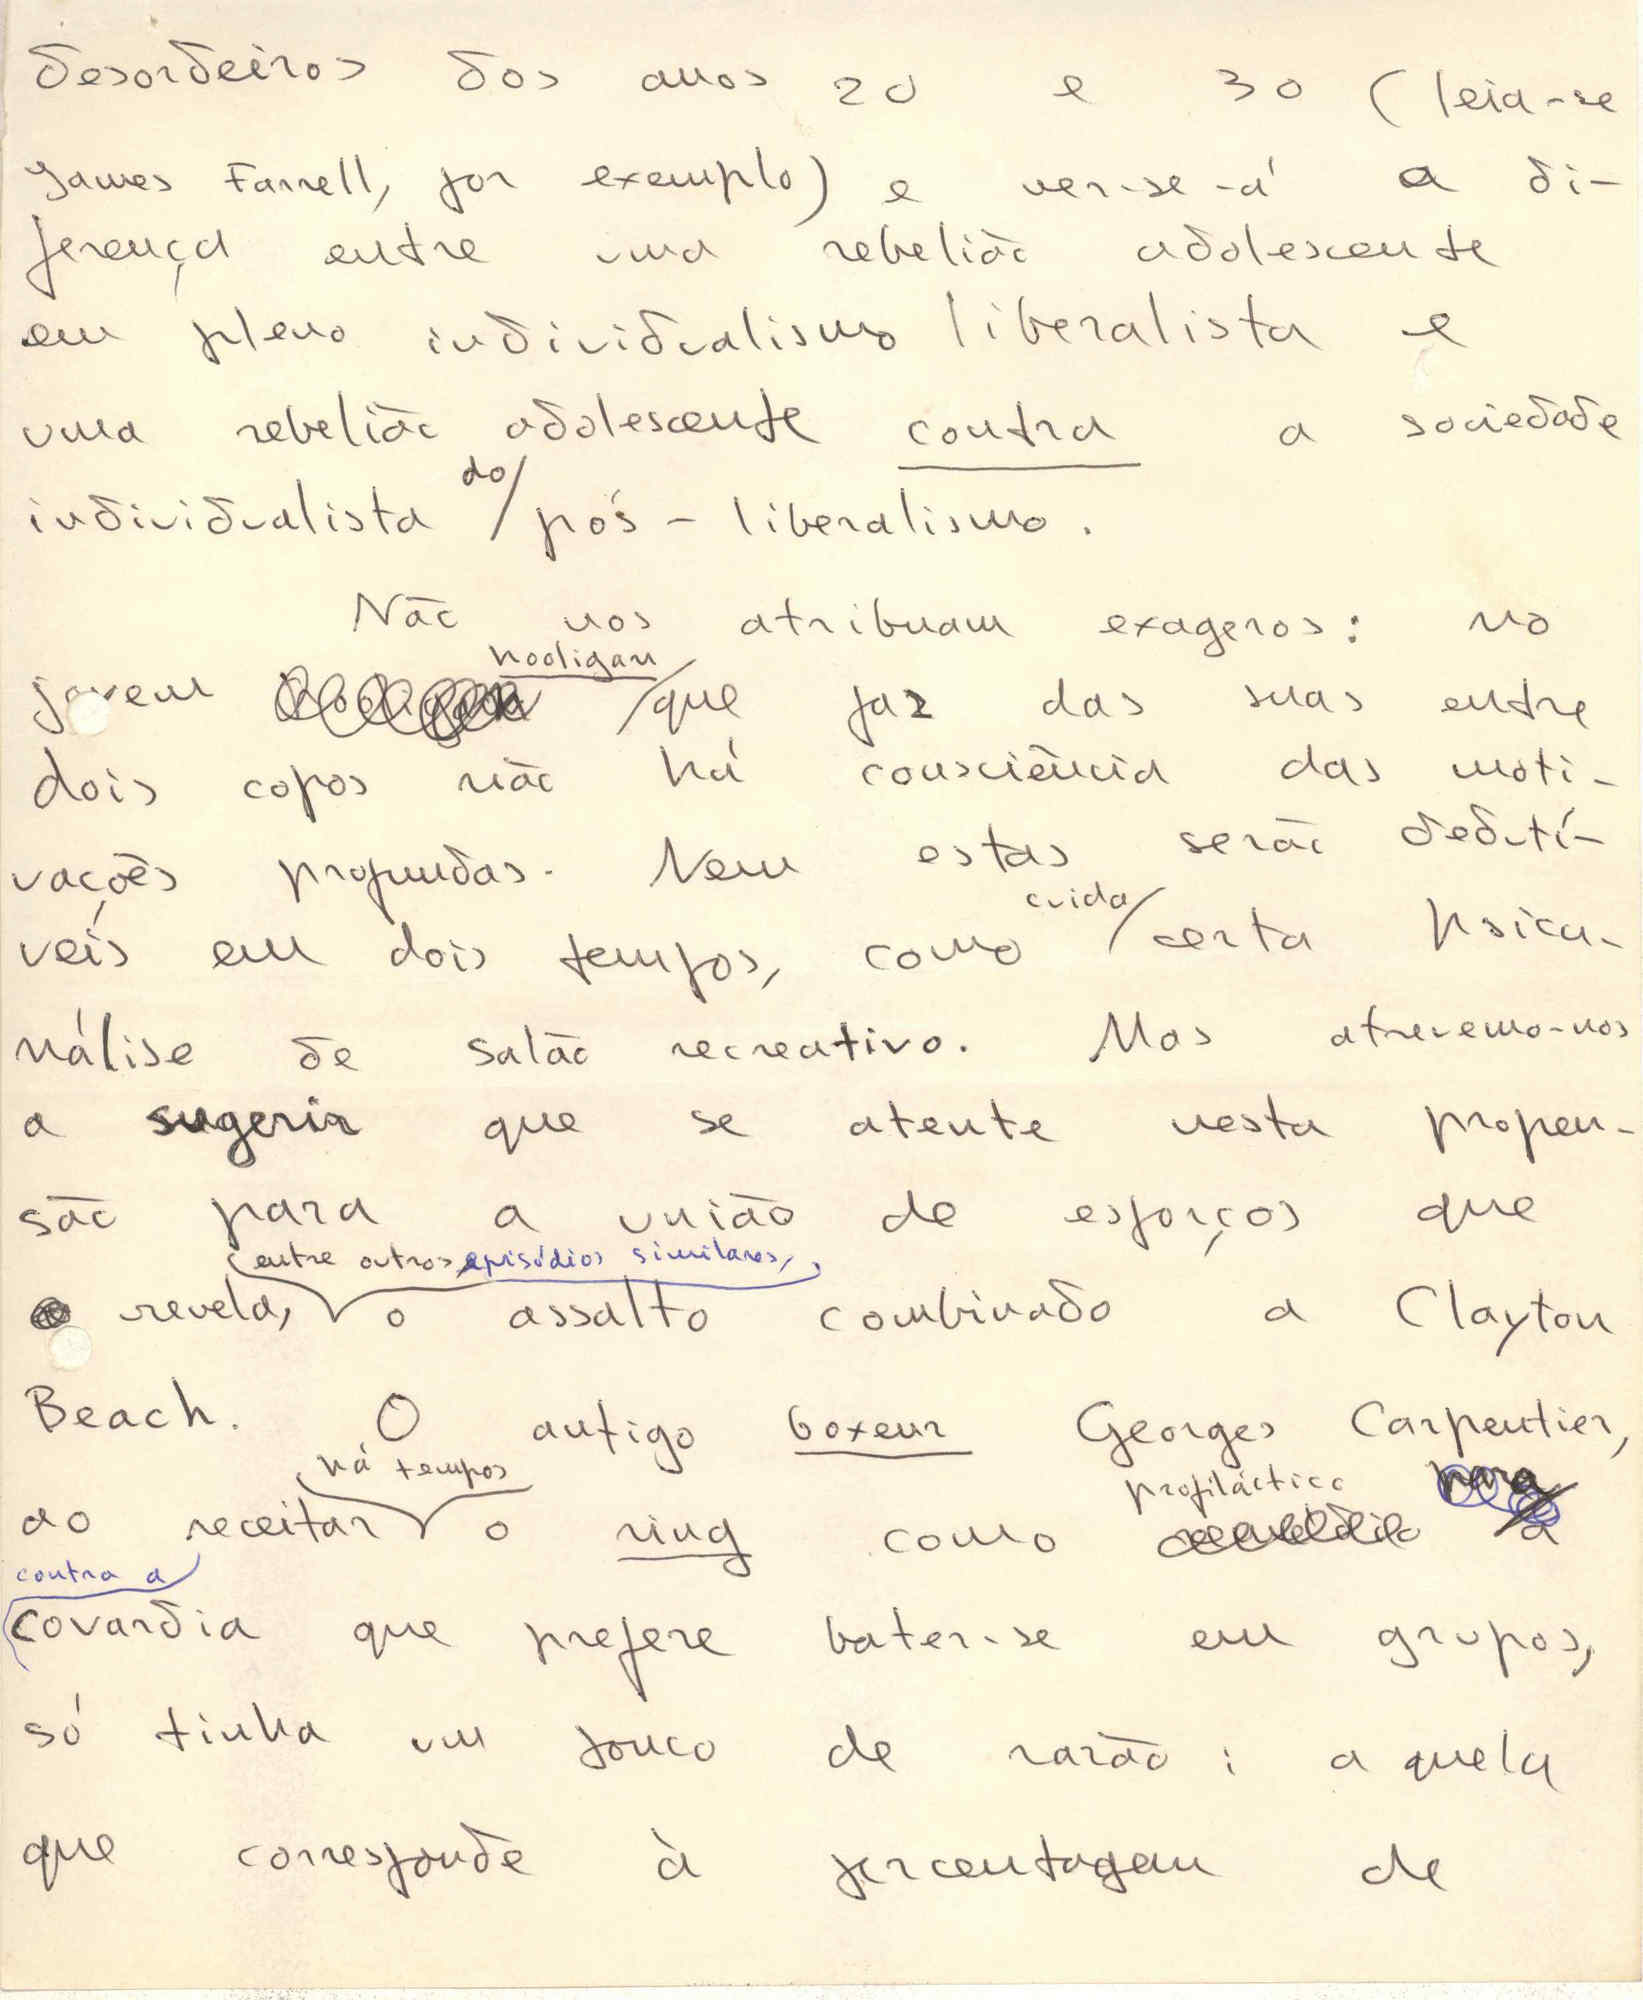 desordeiros dos anos 20 e 30 (leia-se
James Farrell, por exemplo) e ver-se-á a di-
ferença entre uma rebelião adolescente
em pleno individualismo liberalista e
uma rebelião adolescente contra a sociedade
do
individualista pós-liberalismo.
Não nos atribuam exageros: no
hooligan
jovem que faz das suas entre
dois copos não há consciência das moti-
vações profundas. Nem estas serão dedutí-
cuida
veís em dois tempos, como certa psica-
nálise de salão recreativo. Mas atrevemo-nos
a sugerir que se atente nesta propen-
são para a união de esforços que
entre outros episódios similares,
revela, o assalto combinado a Clayton
Beach. O antigo boxeur Georges Carpentier,
há tempos profiláctico para
ao receitar o ring como a
contra a
covardia que prefere bater-se em grupos,
só tinha um pouco de razão: aquela
que corresponde à percentagem de